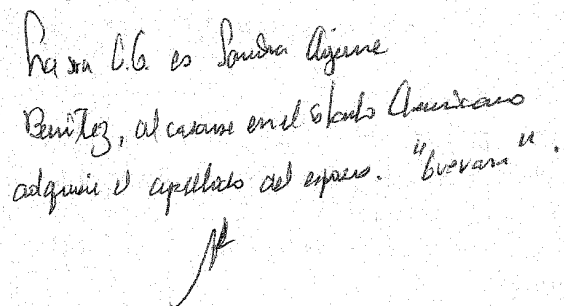 La sra C.G. es Sandra
Benítez, al casarse en el Estado Americano
adquirió el apellido del esposo. "Guevara".